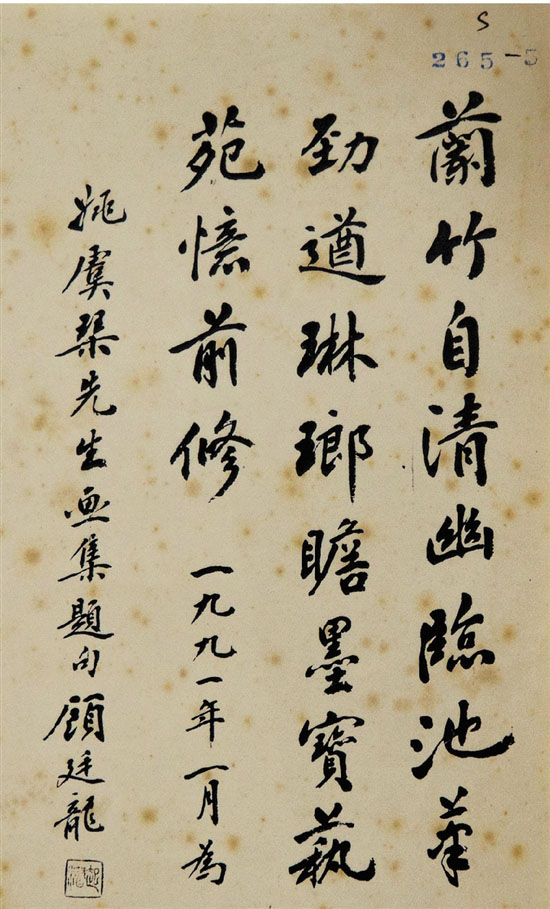 S
265-5
蘭竹自清幽臨池筆
勁遒琳瑯瞻墨寶藝
苑憶前修
一九九一年一月為
姚虞琴先生画集題句顧廷龍